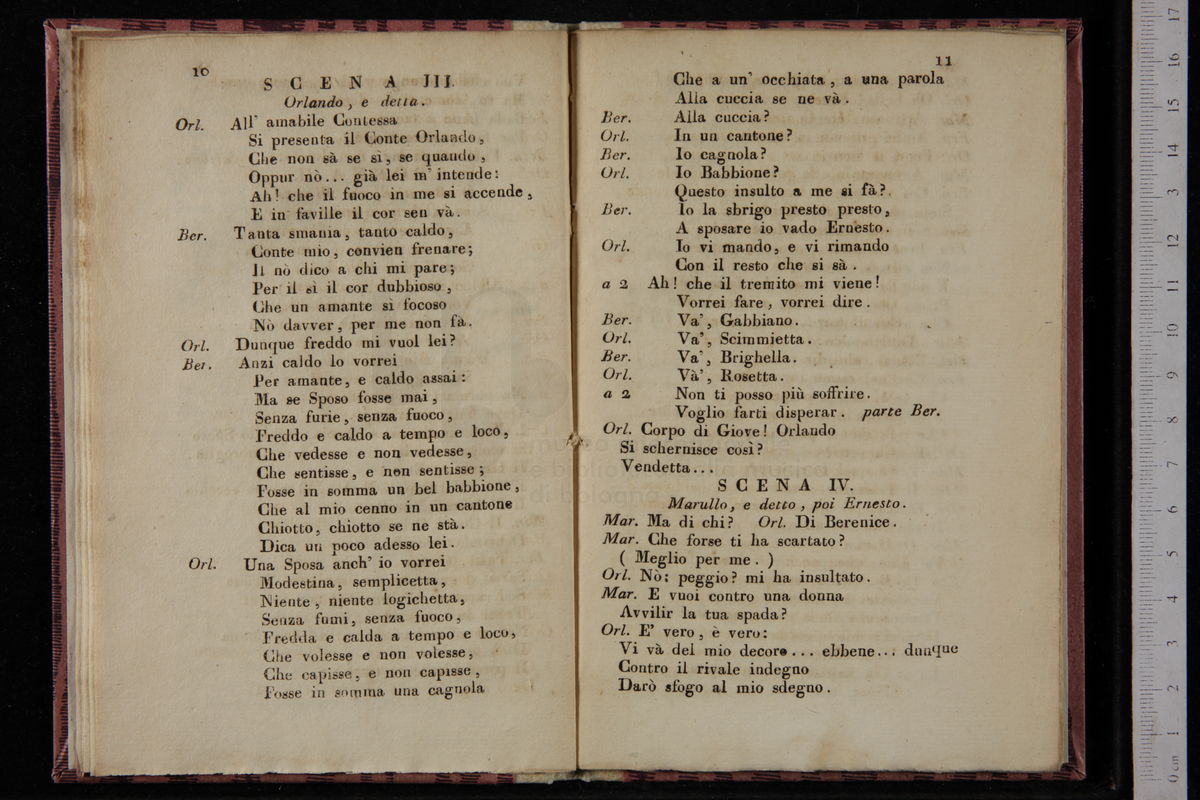 10
SCENA III.
Orlando, e detta.
Orl. All' amabile Contessa
Si presenta il Conte Orlando,
Che non sà se sì, se quando,
Oppur nò... già lei m' intende:
Ah! che il fuoco in me si accende,
E in faville il cor sen và.
Ber. Tanta smania, tanto caldo,
Conte mio, convien frenare;
Il nò dico a chi mi pare;
Per il sì il cor dubbioso,
Che un amante sì focoso
Nò davver, per me non fà.
Orl. Dunque freddo mi vuol lei?
Ber. Anzi caldo lo vorrei
Per amante, e caldo assai:
Ma se Sposo fosse mai,
Senza furie, senza fuoco,
Freddo e caldo a tempo e loco,
Che vedesse e non vedesse,
Che sentisse, e non sentisse;
Fosse in somma un bel babbione,
Che al mio cenno in un cantone
Chiotto, chiotto se ne stà.
Dica un poco adesso lei.
Orl. Una Sposa anch' io vorrei
Modestina, semplicetta,
Niente, niente logichetta,
Senza fumi, senza fuoco,
Fredda e calda a tempo e loco,
Che volesse e non volesse,
Che capisse, e non capisse,
Fosse in somma una cagnola
11
Che a un' occhiata, a una parola
Alla cuccia se ne và.
Ber. Alla cuccia?
Orl. In un cantone?
Ber. Io cagnola?
Orl. Io Babbione?
Questo insulto a me si fà?
Ber. Io la sbrigo presto presto,
A sposare io vado Ernesto.
Orl. Io vi mando, e vi rimando
Con il resto che si sà.
a 2 Ah! che il tremito mi viene!
Vorrei fare, vorrei dire.
Ber. Va', Gabbiano.
Orl. Va', Scimmietta.
Ber. Va', Brighella.
Orl. Và', Rosetta.
a 2 Non ti posso più soffrire.
Voglio farti disperar. parte Ber.
Orl. Corpo di Giove! Orlando
Si schernisce così?
Vendetta...
SCENA IV.
Marullo, e detto, poi Ernesto.
Mar. Ma di chi? Orl. Di Berenice.
Mar. Che forse ti ha scartato?
( Meglio per me. )
Orl. Nò: peggio? mi ha insultato.
Mar. E vuoi contro una donna
Avvilir la tua spada?
Orl. E' vero, è vero:
Vi và del mio decoro... ebbene... dunque
Contro il rivale indegno
Darò sfogo al mio sdegno.